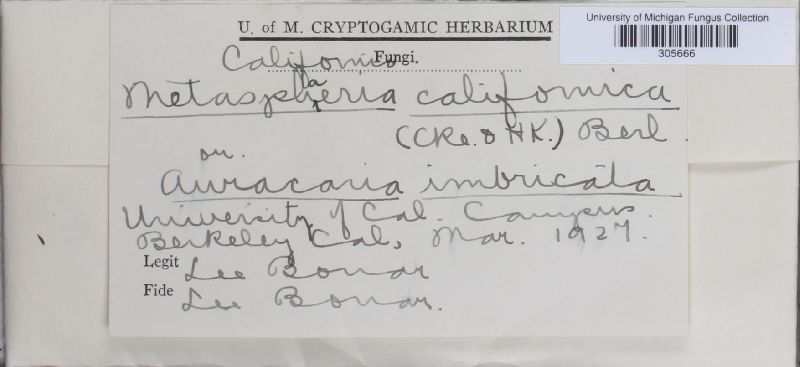 U. of M. CRYPTOGAMIC HERBARIUM
University of Michigan Fungus Collection
305666
California Fungi.
Metasphaeria californica
(CKe. & HK.) Berl.
on.
Auracaria imbricata
University of Cal. Campus.
Berkeley Cal, Mar. 1927.
Legit Lee Bonar
Fide Lee Bonar.